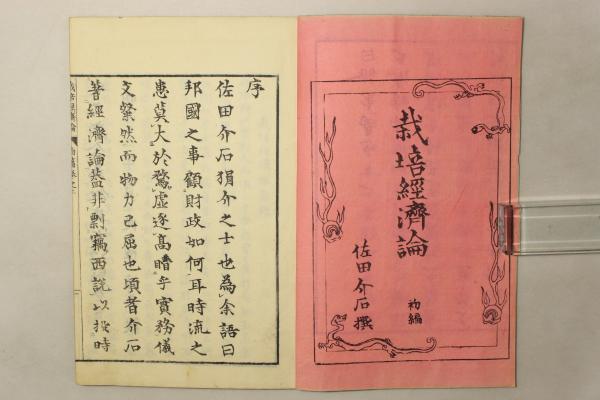 栽培經濟論
初編
佐田介石撰
序
佐田介石狷介之士也為余語曰
邦國之事顧財政如何耳時流之
患莫大於騖虛逐高瞔乎實務儀
文粲然而物力已屈也頃者介石
著經濟論蓋非剽竊西說以投時
栽培經濟論